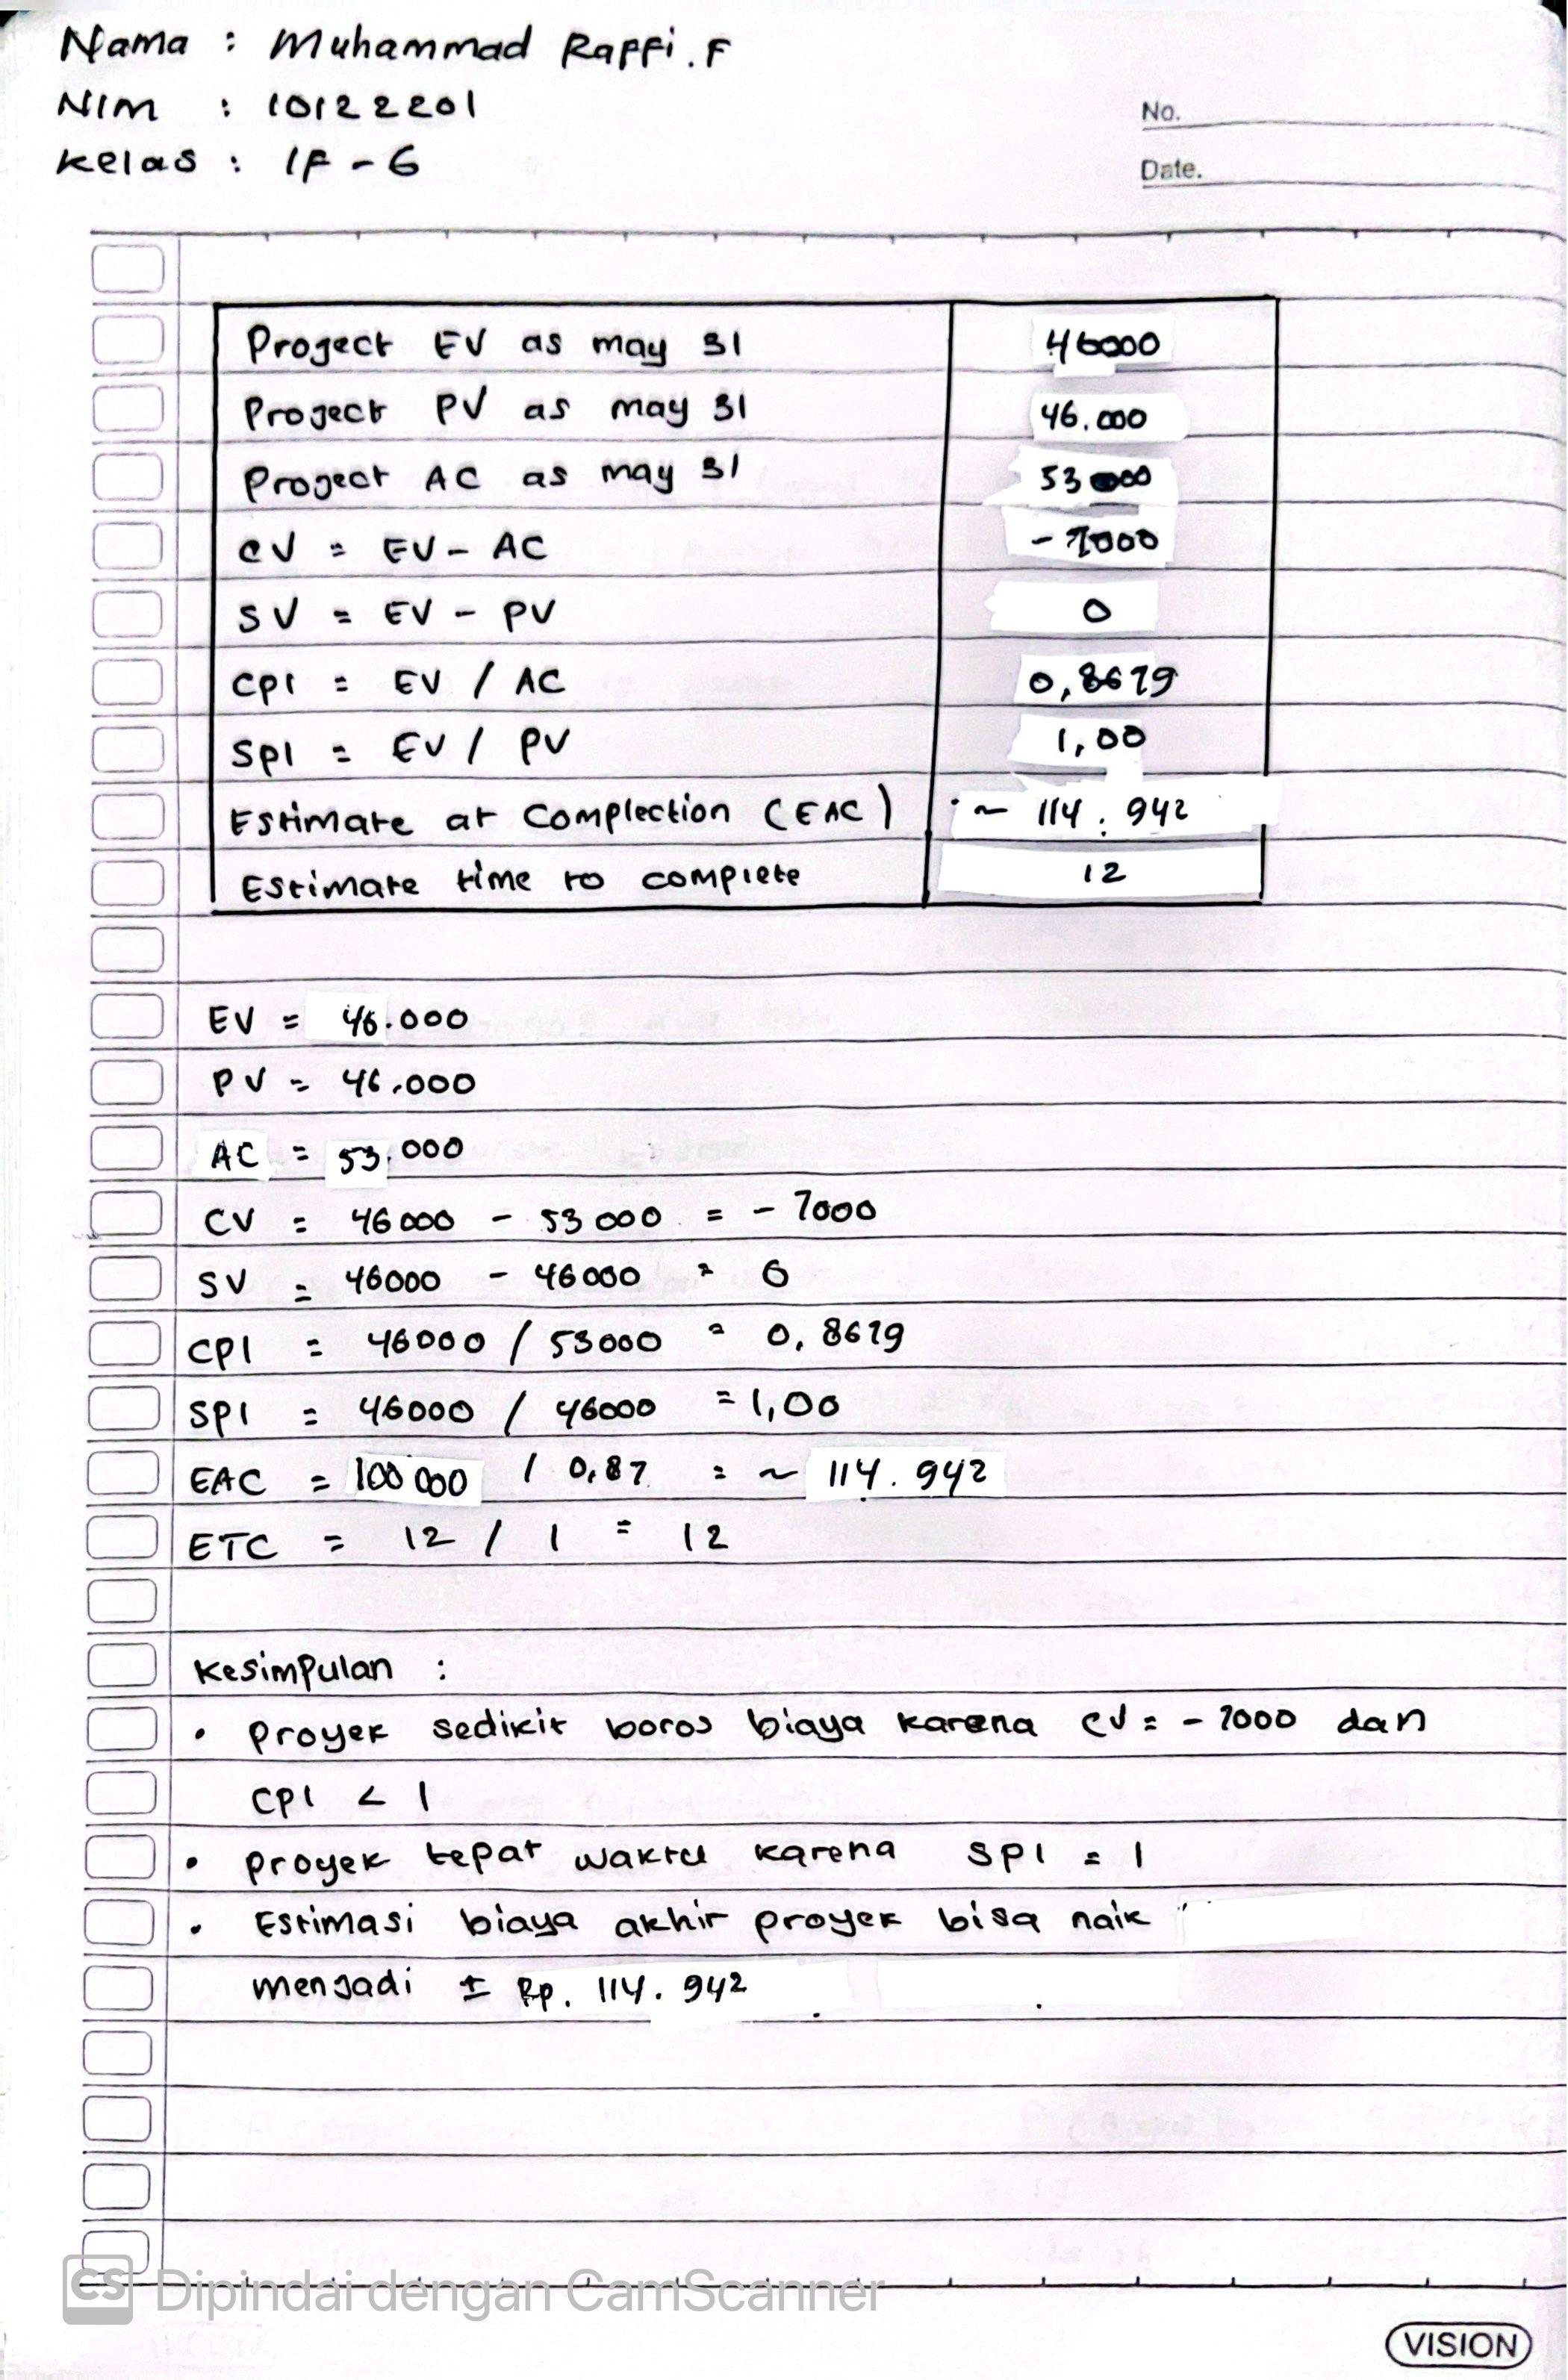 Nama : Muhammad Raffi.F
NIM : 10122201
Kelas : IF - 6
No.
Date.
Project EV as may 31 46000
Project PV as may 31 46.000
Project AC as may 31 53000
CV = EV - AC - 7000
SV = EV - PV 0
CPI = EV / AC 0,8679
SPI = EV / PV 1,00
Estimate at Complection (EAC) ~ 114.942
Estimate time to complete 12
EV = 46.000
PV = 46.000
AC = 53.000
CV = 46000 - 53000 = - 7000
SV = 46000 - 46000 = 0
CPI = 46000 / 53000 = 0,8679
SPI = 46000 / 46000 = 1,00
EAC = 100000 / 0,87 = ~ 114.942
ETC = 12 / 1 = 12
Kesimpulan :
• Proyek sedikit boros biaya karena CV = - 7000 dan
CPI < 1
• Proyek tepat waktu karena SPI = 1
• Estimasi biaya akhir proyek bisa naik
menjadi ± Rp. 114.942
CS Dipindai dengan CamScanner
VISION